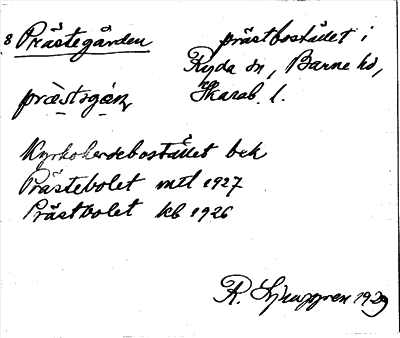 8 Prästegården
prästbostället i
Ryda sn, Barne hd,
Skarab. l.
præ̀stᴉgáɳ
Kyrkoherdebostället bek
Prästebolet mtl 1927
Prästbolet kb 1926
R. Ljunggren 1929